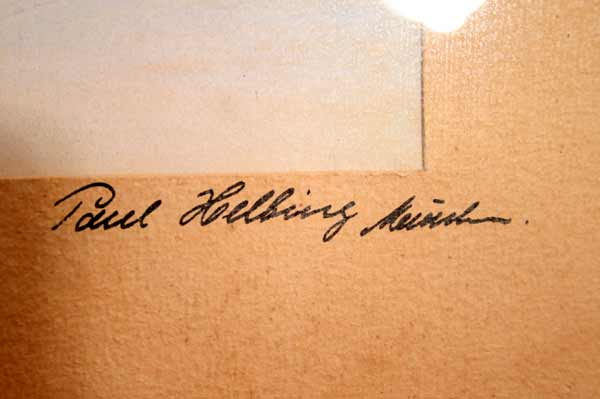 Paul Helbing München.